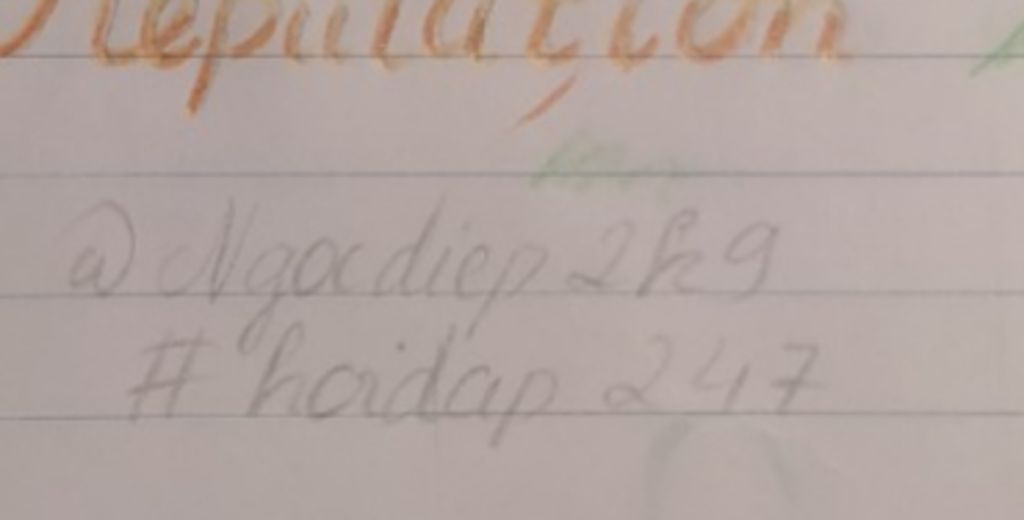 reputation
@Ngocdiep2k9
#hoidap247